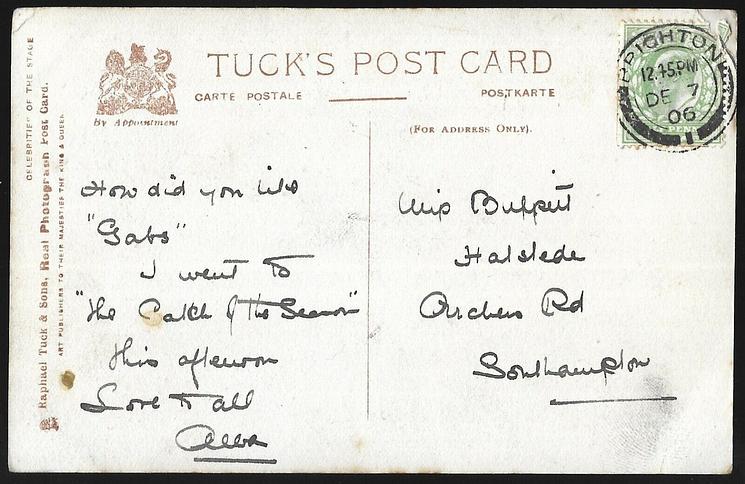 TUCK'S POST CARD
CARTE POSTALE
POSTKARTE
By Appointment
(FOR ADDRESS ONLY).
CELEBRITIES OF THE STAGE
Raphael Tuck & Sons, Real Photograph Post Card.
ART PUBLISHERS TO THEIR MAJESTIES THE KING & QUEEN
BRIGHTON
12.45PM
DE 7
06
1
How did you like
"Gabs"
I went to
"The Catch of the Season"
this afternoon
Love to all
Miss
Halstede
Archers Rd
Southampton